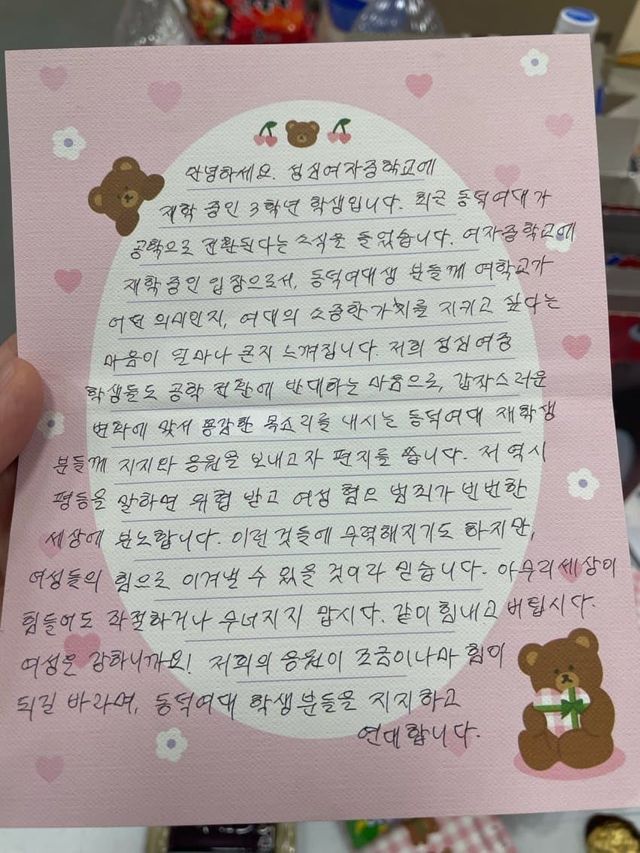 안녕하세요. 정심여자중학교에
재학 중인 3학년 학생입니다. 최근 동덕여대가
공학으로 전환된다는 소식을 들었습니다. 여자중학교에
재학중인 입장으로서, 동덕여대생 분들께 여학교가
어떤 의미인지, 여대의 소중한가치를 지키고 싶다는
마음이 얼마나 큰지 느껴집니다. 저희 정심여중
학생들도 공학 전환에 반대하는 마음으로, 갑작스러운
변화에 맞서 용감한 목소리를 내시는 동덕여대 재학생
분들께 지지와 응원을 보내고자 편지를 씁니다. 저 역시
평등을 말하면 위협 받고 여성 혐오 범죄가 빈번한
세상에 분노합니다. 이런 것들에 무력해지기도 하지만,
여성들의 힘으로 이겨낼 수 있을 것이라 믿습니다. 아무리세상이
힘들어도 좌절하거나 무너지지 맙시다. 같이 힘내고 버팁시다.
여성은 강하니까요! 저희의 응원이 조금이나마 힘이
되길 바라며, 동덕여대 학생분들을 지지하고
연대합니다.